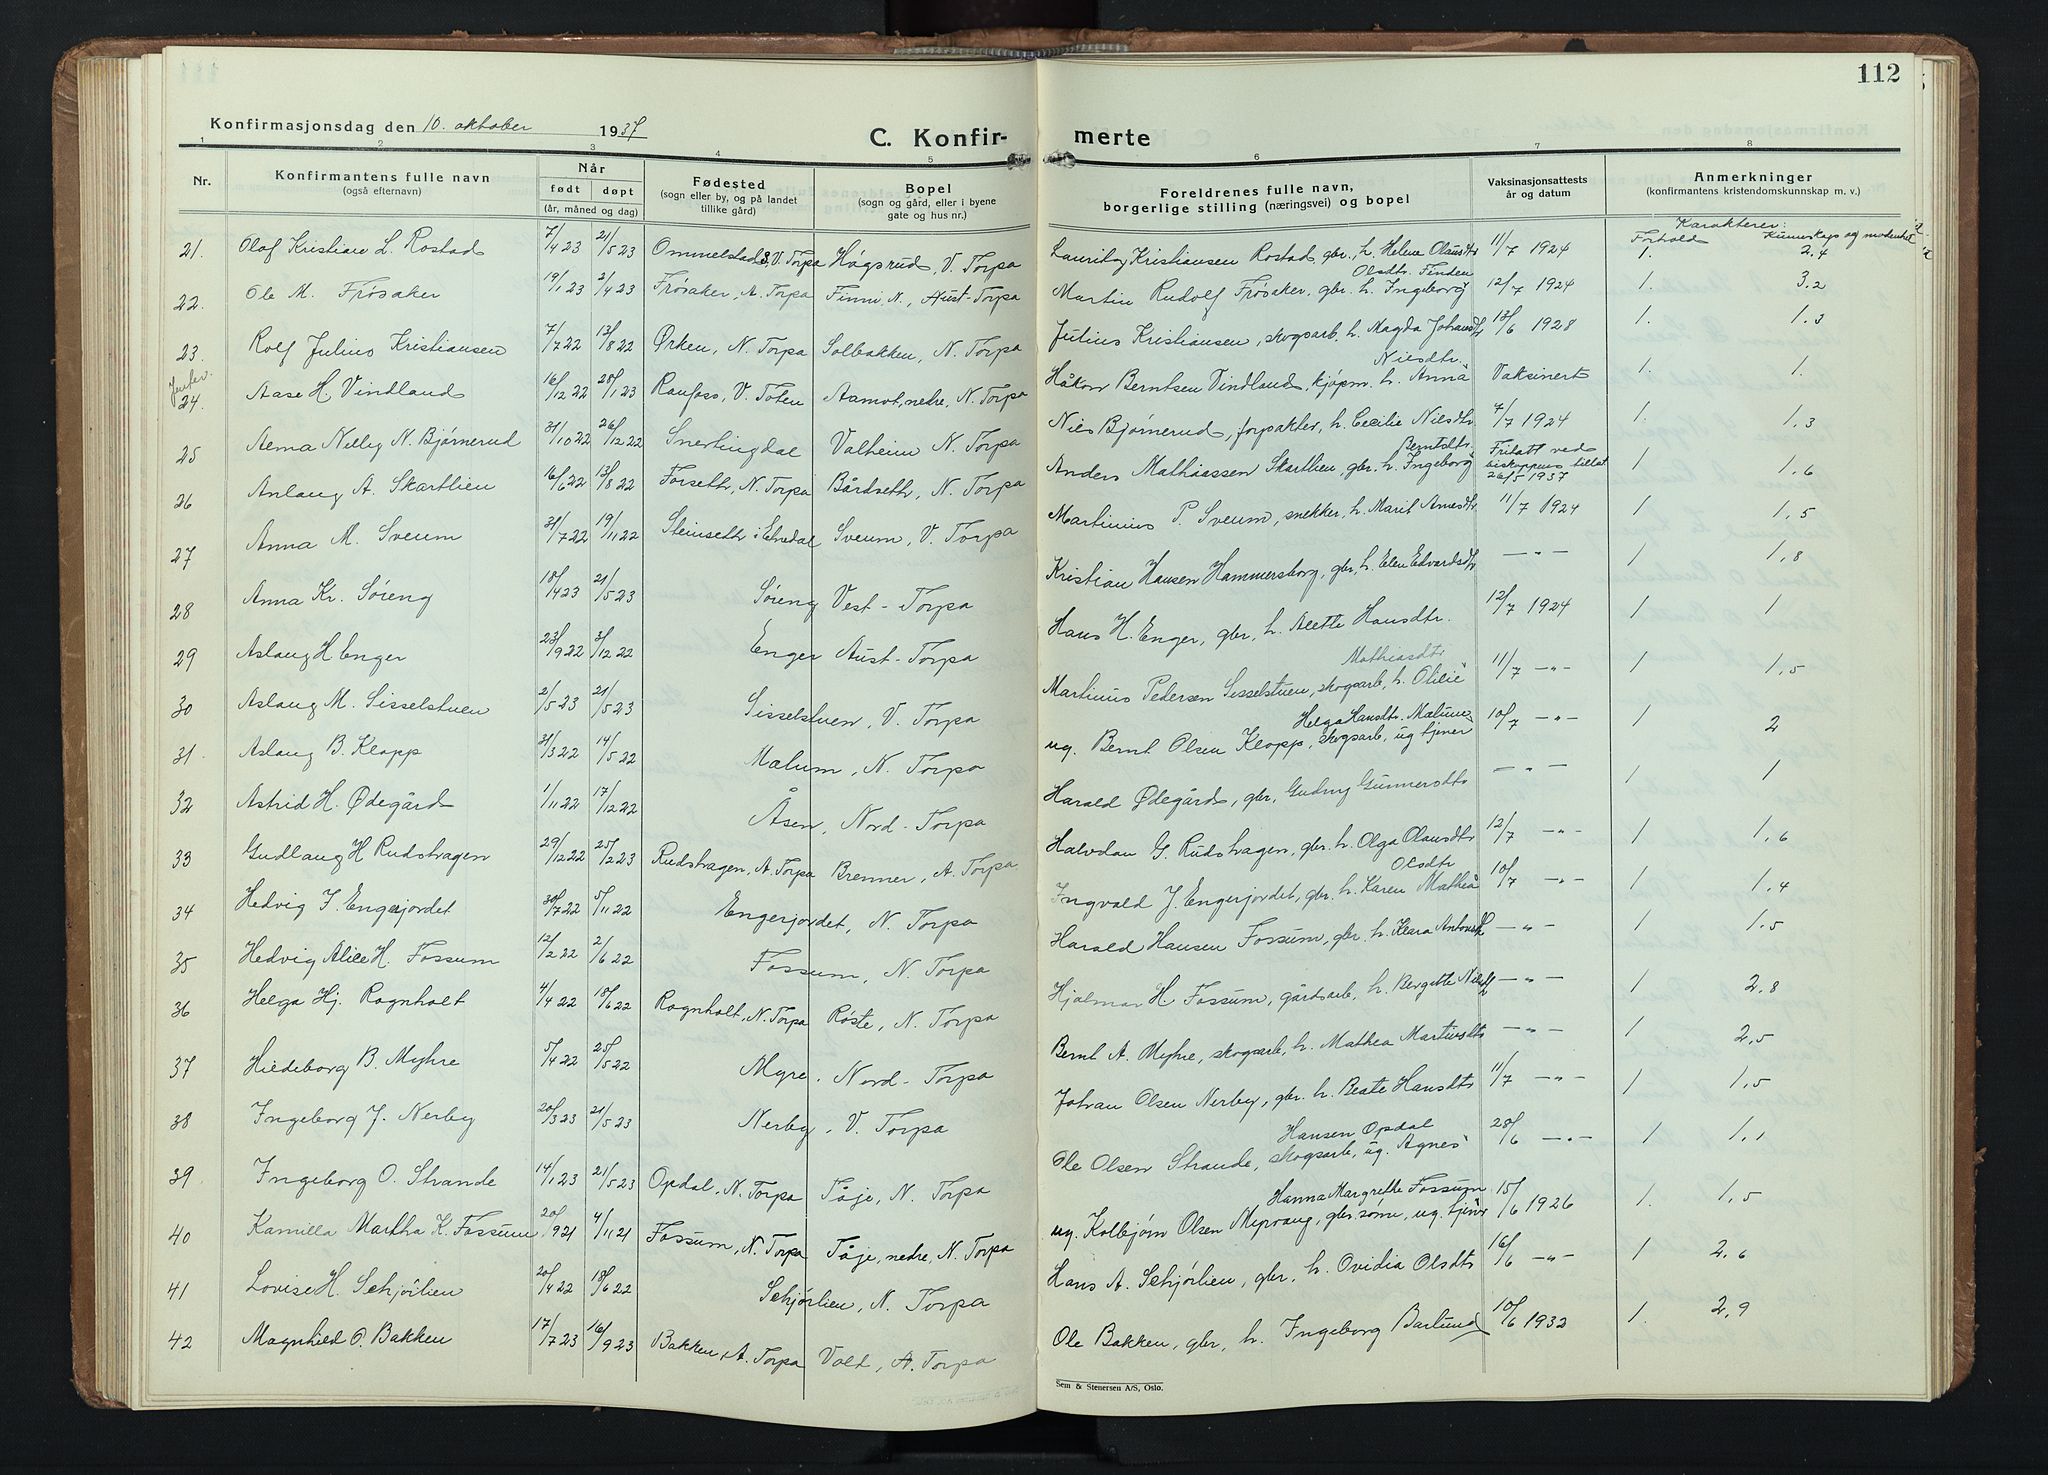 112
Konfirmasjonsdag den 10. oktober 1937
C. Konfirmerte
1 2 3 4 5 6 7 8
Nr. Konfirmantens fulle navn (også efternavn) Når født døpt (år, måned og dag) Fødested (sogn eller by, og på landet tillike gård) Bopel (sogn og gård, eller i byene gate og hus nr.) Foreldrenes fulle navn, borgerlige stilling (næringsvei) og bopel Vaksinasjonsattests år og datum Anmerkninger (konfirmantens kristendomskunnskap m. v.)
Karakterer:
Forhold Kunnskap og modenhet
21. Olaf Kristian L. Rostad 7/4 23 21/5 23 Ommelstad, V. Torpa Høgsrud, V. Torpa Lauritz Kristiansen Rostad, gbr, h. Helene Olausdtr 11/7 1924 1. 2,4
22. Ole M. Frøsaker 19/1 23 2/4 23 Frøsaker, A. Torpa Finni, N., Aust-Torpa Martin Rudolf Frøsaker, gbr. h. Ingeborg Olsdtr. Finden 12/7 1924 1. 3.2
23. Rolf Julius Kristiansen 7/7 22 13/8 22 Ørken, N. Torpa Solbakken, N. Torpa Julius Kristiansen, skogsarb, h. Magda Johansdtr 13/6 1928 1. 1.3
Jenter.
24. Aase H. Vindland 16/12 22 28/1 23 Raufoss, V. Toten Aamot, nedre, N. Torpa Håkon Berntsen Vindland, kjøpm. h. Anna Nilsdtr. Vaksinert 1. 1.
25 Anna Nelly N. Bjørnerud 31/10 22 26/12 22 Snertingdal Valheim N. Torpa Nils Bjørnerud, forpakter, h. Cecilie Nilsdtr 7/7 1924 1. 1,3
26 Anlaug A. Skartlien 16/6 22 13/8 22 Forseth, N. Torpa Bårdseth, N. Torpa Anders Mathiassen Skartlien, gbr. h. Ingeborg Berntdtr. Fritatt ved biskoppens tillat. 26/5 1937 1 1,6
27 Anna M. Sveum 31/7 22 19/11 22 Steinseth i Etnedal Sveum, V. Torpa Martinius P. Sveum, snekker, h. Marit Arnesdtr 11/7 1924 1 1,5
28 Anna Kr. Søreng 18/4 23 21/5 23 Søreng Vest-Torpa Kristian Hansen Hammersborg, gbr, h. Elen Edvardsdtr — " — 1 1,8
29 Aslaug H Enger 23/9 22 3/12 22 Enger Aust-Torpa Hans H. Enger, gbr, h. Alette Hansdtr. 12/7 1924 1 1
30 Aslaug M. Sisselstuen 2/5 23 21/5 23 Sisselstuen, V. Torpa Martinius Pedersen Sisselstuen, skogsarb, h. Otilie Mathiasdtr 11/7 — " — 1 1,5
31 Aslaug B. Klopp 31/3 22 14/5 22 Mælum, N. Torpa ug. Bernt Olsen Klopp, skogsarb, ug tjener Helga Hansdtr. Mælum 10/7 — " — 1 2
32 Astrid H. Ødegård 1/11 22 17/12 22 Åsen, Nord-Torpa Harald Ødegård, gbr, Gudny Gunnersdtr — " — 1 1
33 Gudlaug H Rudshagen 29/12 22 25/2 23 Rudshagen, A. Torpa Brenner, A. Torpa Halvdan G. Rudshagen, gbr. h. Olga Olausdtr 12/7 — " — 1 1,6
34 Hedvig I. Engerjordet 30/7 22 5/11 22 Engerjordet, N. Torpa Ingvald J. Engerjordet, gbr. h. Karen Mathea Olsdtr 10/7 — " — 1 1,4
35 Hedvig Alice H. Fossum 12/2 22 2/6 22 Fossum, N. Torpa Harald Hansen Fossum, gbr. h. Klara Antonsdtr — " — 1 1.5
36 Helga Hj. Rognholt 4/4 22 18/6 22 Rognholt, N. Torpa Røste, N. Torpa Hjalmar H Fossum, gårdsarb, h. Bergitte Nilsdtr — " — 1 2,8
37 Hildeborg B. Myhre 5/4 22 25/5 22 Myre, Nord-Torpa Bernt A. Myhre, skogsarb, h. Mathea Martinsdtr — " — 1 2,5
38 Ingeborg J. Nerby 20/3 23 21/5 23 Nerby, V. Torpa Johan Olsen Nerby, gbr. h. Beate Hansdtr 11/7 — " — 1 1,5
39 Ingeborg O. Strande 14/1 23 21/5 23 Opdal, N. Torpa Tåje, N. Torpa Ole Olsen Strande, skogsarb, ug. Agnes Hansen Opdal 28/6 — " — 1 1,1
40 Kamilla Martha K. Fossum 20/9 21 4/11 21 Fossum, N. Torpa Tåje, nedre, N. Torpa ug. Kolbjørn Olsen Myrvang, gbr.sønn, ug. tjener Hanna Margrethe Fossum 15/6 1926 1. 1,5
41 Lovise H. Schjørlien 20/4 22 18/6 22 Schjørlien, N. Torpa Hans A. Schjørlien, gbr, h. Ovidia Olsdtr 16/6 — " — 1 2,6
42 Magnhild O. Bakken 17/7 23 16/9 23 Bakken, A. Torpa Vold, A. Torpa Ole Bakken, gbr, h. Ingeborg Barlund 10/6 1932 1. 2,9
Sem & Stenersen A/S, Oslo.